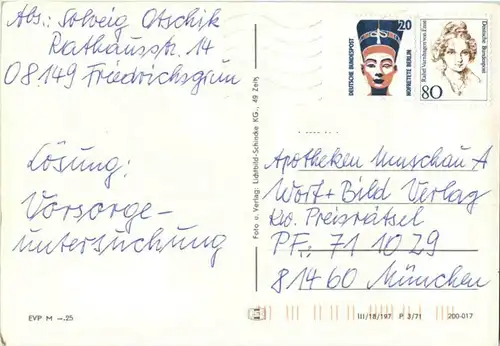 Abs.: Solveig Otschik
Rathausstr. 14
08149 Friedrichsgrün
Lösung:
Vorsorge-
untersuchung
EVP M –.25
Foto u. Verlag: Lichtbild-Schincke KG., 49 Zeitz
DEUTSCHE BUNDESPOST
20
NOFRETETE BERLIN
80
Rahel Varnhagen von Ense
Deutsche Bundespost
Apotheken Umschau A
Wort + Bild Verlag
Kw. Preisrätsel
PF: 71 10 29
81460 München
III/18/197 P 3/71 200-017